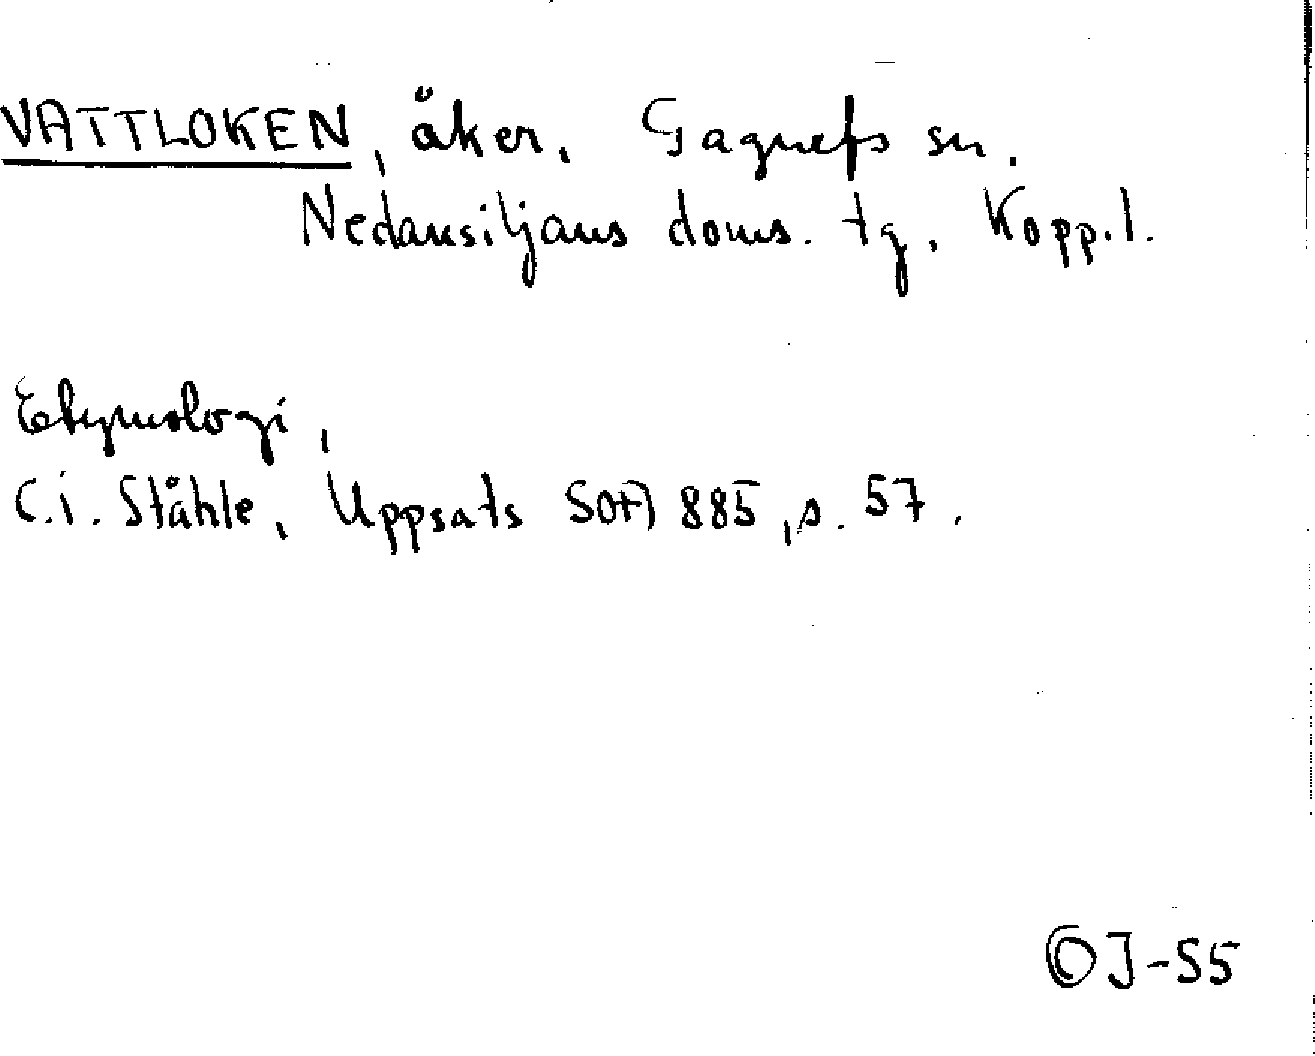 VATTLOKEN, åker, Gagnefs sn.
Nedansiljans doms. tg, Kopp.l.
Etymologi,
C.i. Ståhle, Uppsats SOA 885, s. 57.
OJ-55